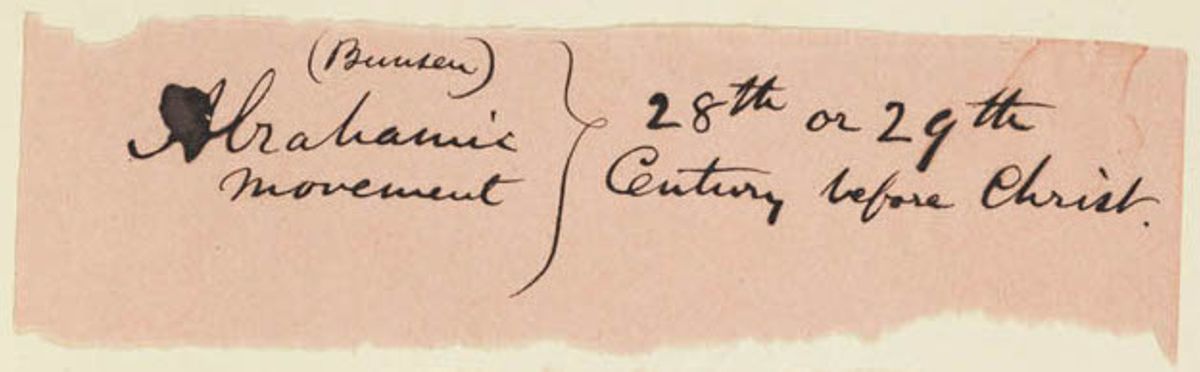 (Bunsen)
Abrahamic
movement
28th or 29th
Century before Christ.